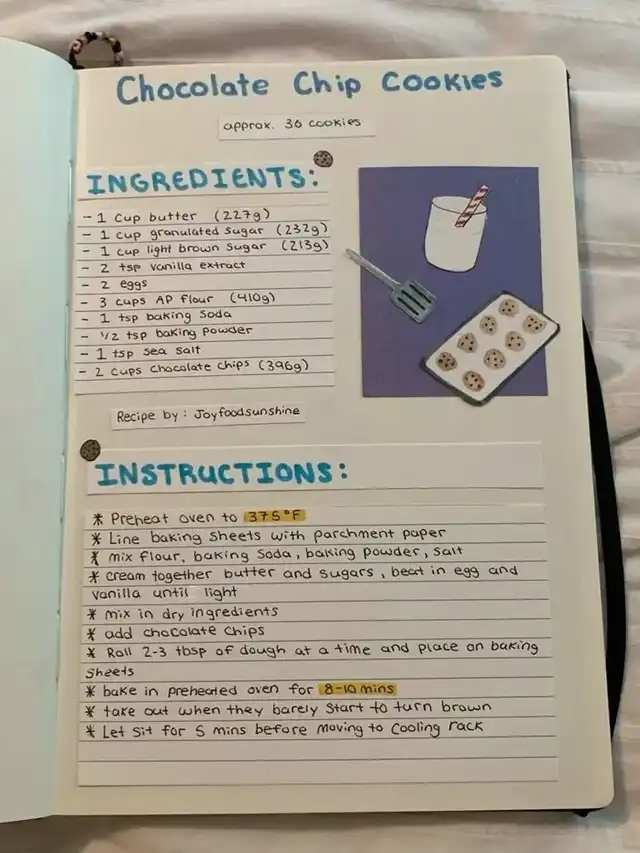 Chocolate Chip Cookies
approx. 36 cookies
INGREDIENTS:
- 1 cup butter (227g)
- 1 cup granulated sugar (232g)
- 1 cup light brown sugar (213g)
- 2 tsp vanilla extract
- 2 eggs
- 3 cups AP flour (410g)
- 1 tsp baking soda
- 1/2 tsp baking powder
- 1 tsp sea salt
- 2 cups chocolate chips (396g)
Recipe by: Joyfoodsunshine
INSTRUCTIONS:
* Preheat oven to 375°F
* Line baking sheets with parchment paper
* mix flour, baking soda, baking powder, salt
* cream together butter and sugars, beat in egg and
vanilla until light
* mix in dry ingredients
* add chocolate chips
* Roll 2-3 tbsp of dough at a time and place on baking
sheets
* bake in preheated oven for 8-10 mins
* take out when they barely start to turn brown
* Let sit for 5 mins before moving to cooling rack